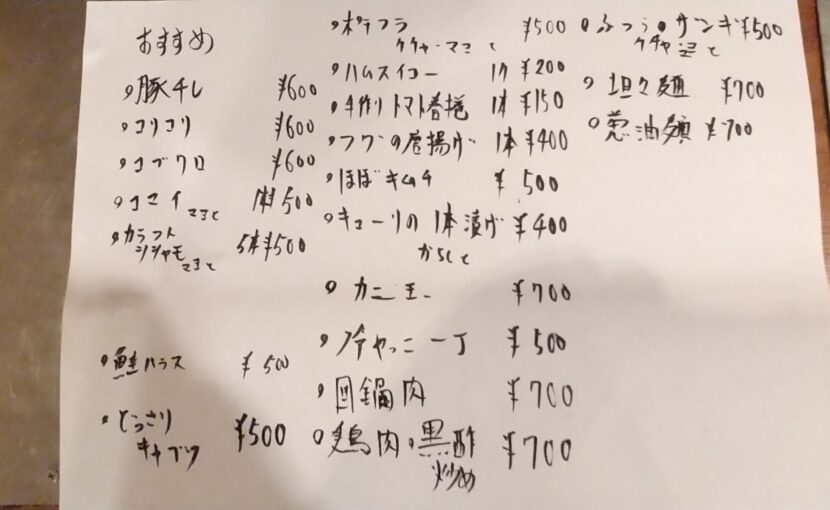 おすすめ
豚チレ ¥600
コリコリ ¥600
コブクロ ¥600
コマイ マヨと 1本¥500
カラフト
シシャモ 5本¥500
マヨと
鮭ハラス ¥500
どっさり
キャブツ ¥500
ポテフラ ¥500
ケチャ・マヨと
ハムスイコー 1ケ¥200
手作りトマト春捲 1本¥150
フグの唐揚げ 1本¥400
ほぼキムチ ¥500
キューリの1本漬け ¥400
からしと
カニ玉 ¥700
冷やっこ一丁 ¥500
回鍋肉 ¥700
鶏肉・黒酢 ¥700
炒め
ふつうのザンギ ¥500
ケチャマヨと
坦々麺 ¥700
葱油麺 ¥700